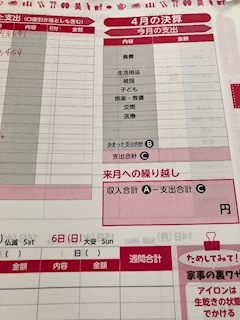 支出 (口座引き落としも含む)
内容 金額 日付 金額
4月の決算
今月の支出
内容 金額
食費
生活用品
被服
子ども
娯楽・教養
交際
医療
決まった支出合計 B
支出合計 C
来月への繰り越し
収入合計 A - 支出合計 C
円
仏滅 Sat 6日(日) 大安 Sun
日( )
金額 内容 金額 週間合計
ためしてみて!
家事の裏ワザ
アイロンは
生乾きの状態
でかける